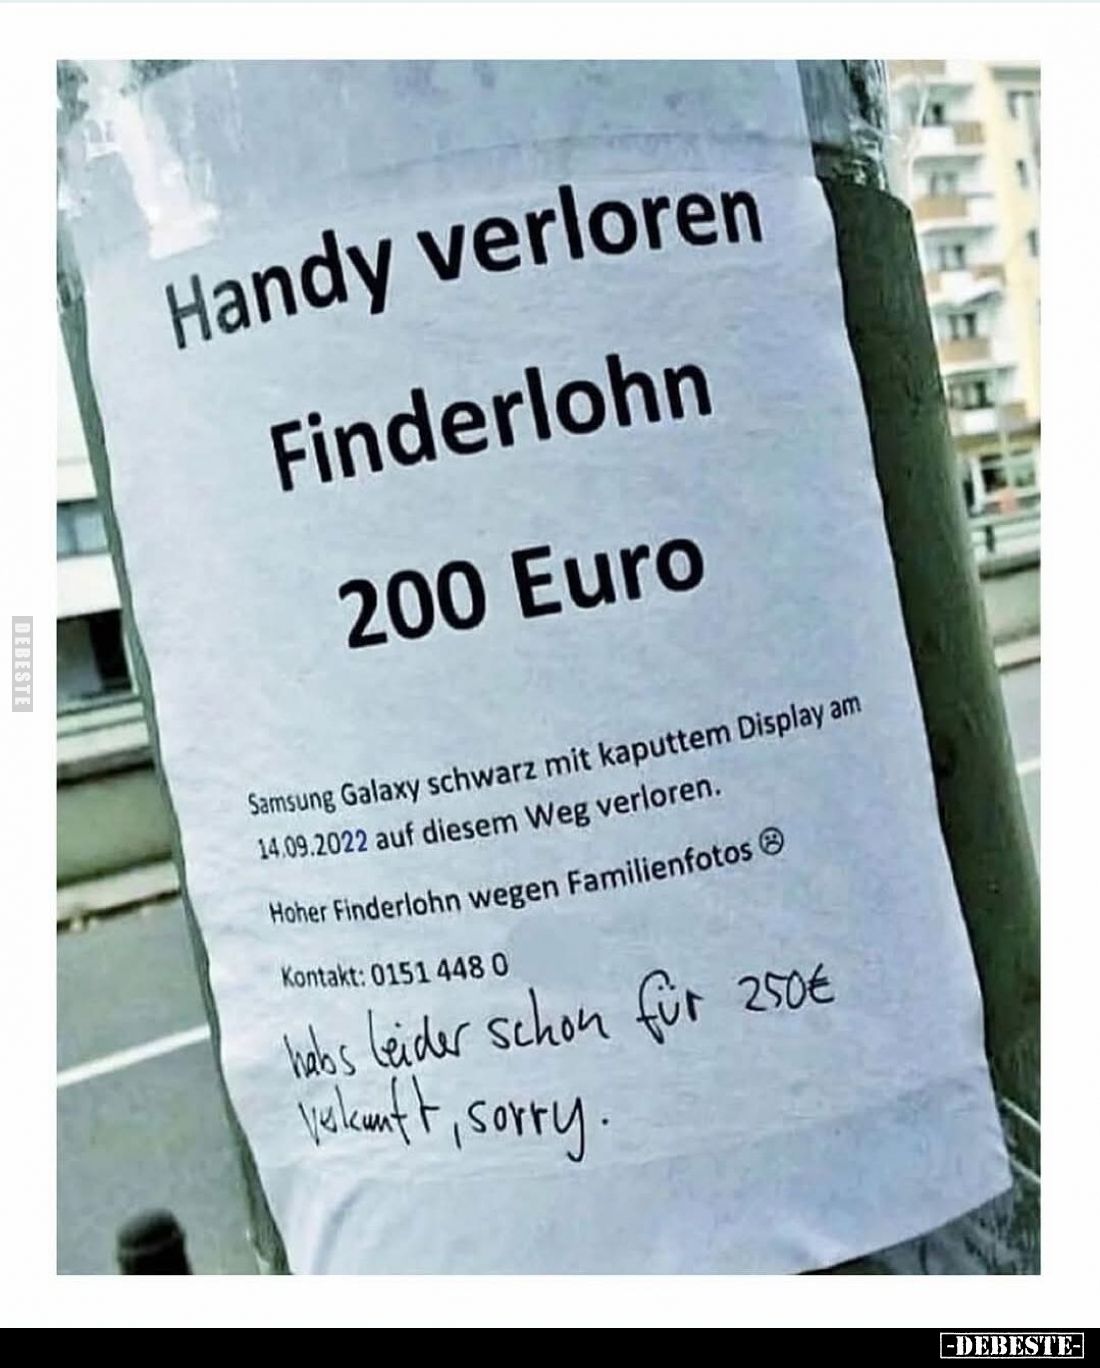 Handy verloren
Finderlohn
200 Euro
Samsung Galaxy schwarz mit kaputtem Display am
14.09.2022 auf diesem Weg verloren.
Hoher Finderlohn wegen Familienfotos ☹
Kontakt: 0151 448 0
habs leider schon für 250€
verkauft, sorry.
DEBESTE
-DEBESTE-